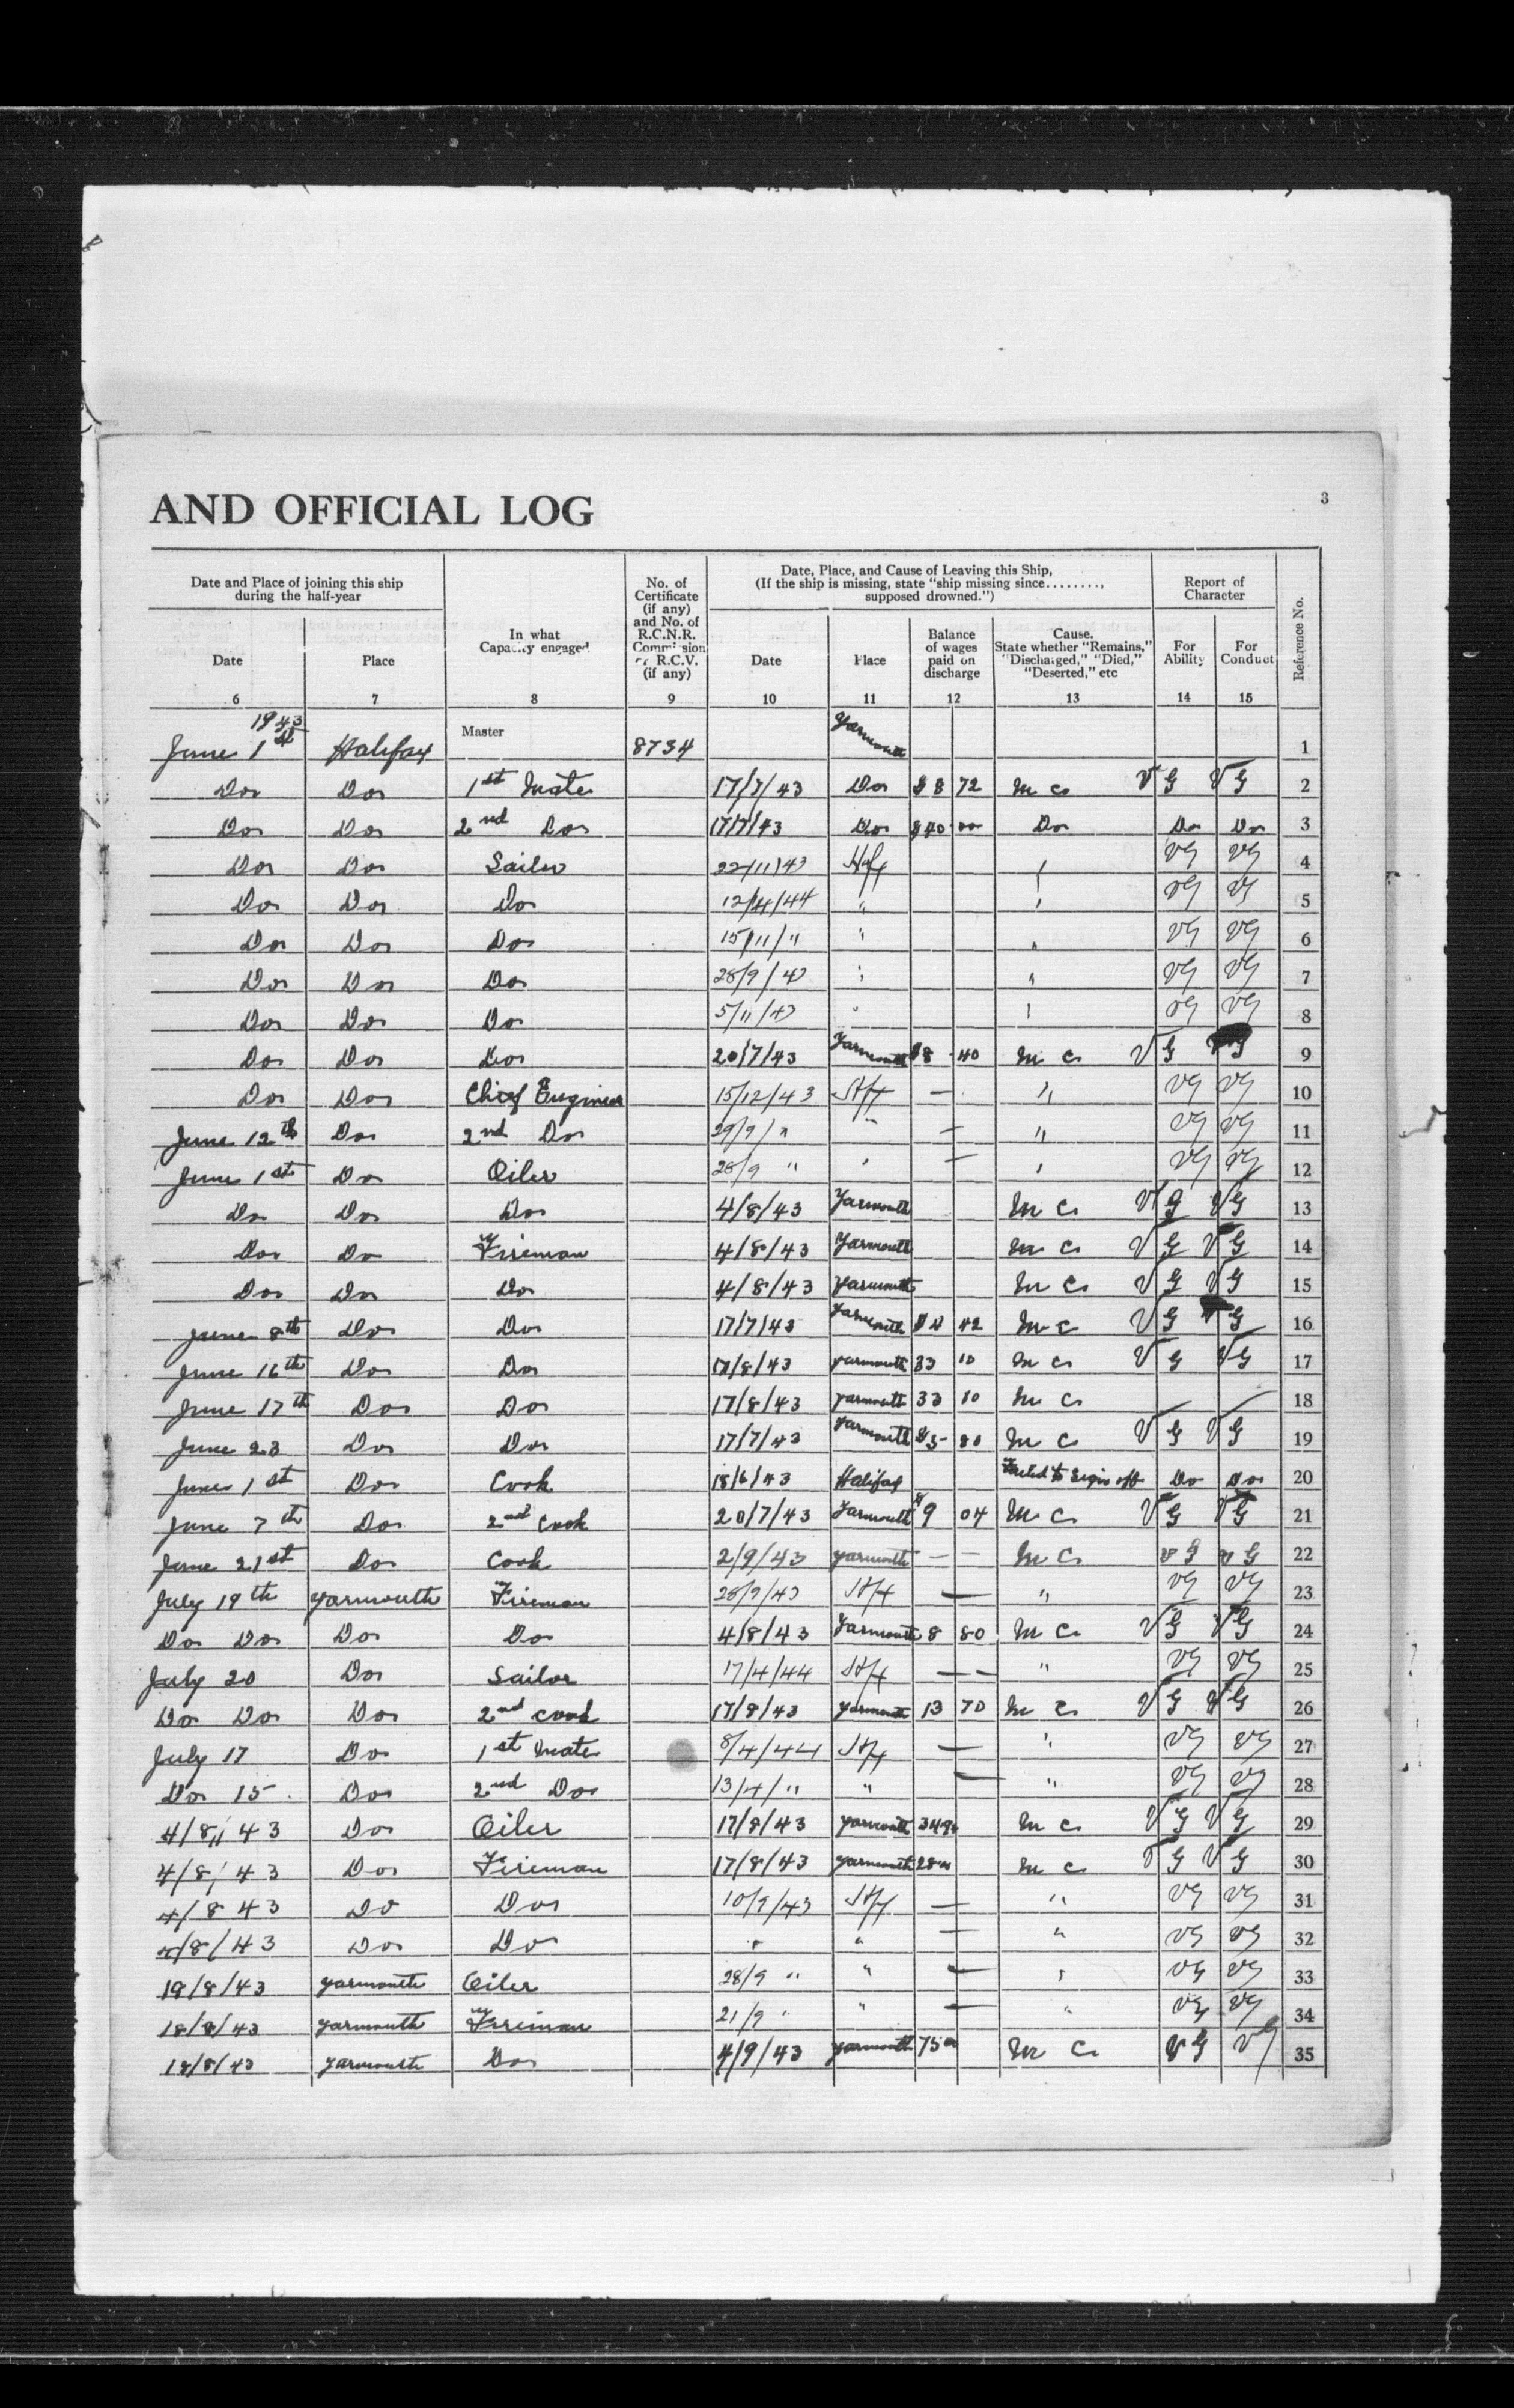 AND OFFICIAL LOG
3
Date and Place of joining this ship during the half-year
In what Capacity engaged
No. of Certificate (if any) and No. of R.C.N.R. Commission or R.C.V. (if any)
Date, Place, and Cause of Leaving this Ship, (If the ship is missing, state "ship missing since........, supposed drowned.")
Report of Character
Reference No.
Date
Place
Date
Place
Balance of wages paid on discharge
Cause. State whether "Remains," "Discharged," "Died," "Deserted," etc
For Ability
For Conduct
6 7 8 9 10 11 12 13 14 15
1943
June 1st Halifax Master 8734 Yarmouth 1
Do Do 1st Mate 17/7/43 Do 72 M C VG VG 2
Do Do 2nd Do 17/7/43 Do Do Do Do 3
Do Do Sailor 22/11/43 Hfx VG VG 4
Do Do Do 12/4/44 " VG VG 5
Do Do Do 15/11/" " " VG VG 6
Do Do Do 28/9/43 " " VG VG 7
Do Do Do 5/11/43 " VG VG 8
Do Do Do 20/7/43 Yarmouth $8 40 M C VG VG 9
Do Do Chief Engineer 15/12/43 Hfx — " VG VG 10
June 12th Do 2nd Do 29/9/" " — " VG VG 11
June 1st Do Oiler 28/9 " " — " VG VG 12
Do Do Do 4/8/43 Yarmouth M C VG VG 13
Do Do Fireman 4/8/43 Yarmouth M C VG VG 14
Do Do Do 4/8/43 Yarmouth M C VG VG 15
June 8th Do Do 17/7/43 Yarmouth 42 M C VG G 16
June 16th Do Do 17/8/43 Yarmouth 33 10 M C VG VG 17
June 17th Do Do 17/8/43 Yarmouth 33 10 M C — — 18
June 23 Do Do 17/7/43 Yarmouth $5 80 M C VG VG 19
June 1st Do Cook 18/6/43 Halifax Failed to sign off Do Do 20
June 7th Do 2nd Cook 20/7/43 Yarmouth $9 04 M C VG VG 21
June 21st Do Cook 2/9/43 Yarmouth — — M C VG VG 22
July 19th Yarmouth Fireman 28/9/43 Hfx — " VG VG 23
Do Do Do Do 4/8/43 Yarmouth 8 80 M C VG VG 24
July 20 Do Sailor 17/4/44 Hfx — — " VG VG 25
Do Do Do 2nd Cook 17/8/43 Yarmouth 13 70 M C VG VG 26
July 17 Do 1st Mate 8/4/44 Hfx — " VG VG 27
Do 15 Do 2nd Do 13/4/" " — " VG VG 28
4/8/43 Do Oiler 17/8/43 Yarmouth M C VG VG 29
4/8/43 Do Fireman 17/8/43 Yarmouth M C VG VG 30
4/8 43 Do Do 10/9/43 Hfx — " VG VG 31
4/8/43 Do Do " " — " VG VG 32
19/8/43 Yarmouth Oiler 28/9 " " — " VG VG 33
18/8/43 Yarmouth Fireman 21/9 " " — " VG VG 34
18/8/43 Yarmouth Do 4/9/43 Yarmouth M C VG VG 35